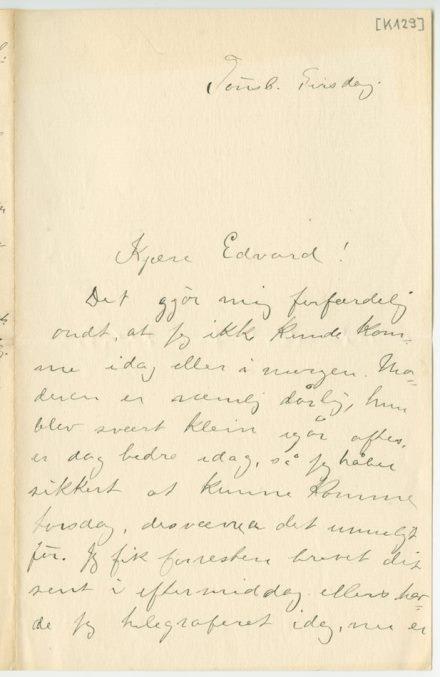 [K129]
Tönsb. Tirsdag.
Kjære Edvard!
Det gjör mig forfærdelig
ondt, at jeg ikke kunde kom-
me idag eller i morgen. Mo-
deren er nemlig dårlig, hun
blev svært klein igår aftes,
er dog bedre idag, så jeg håber
sikkert at kunne komme
torsdag, desværre det umuligt
för. Jeg fik forresten brevet dit
sent i eftermiddag ellers hav-
de jeg telegraferet idag, nu er